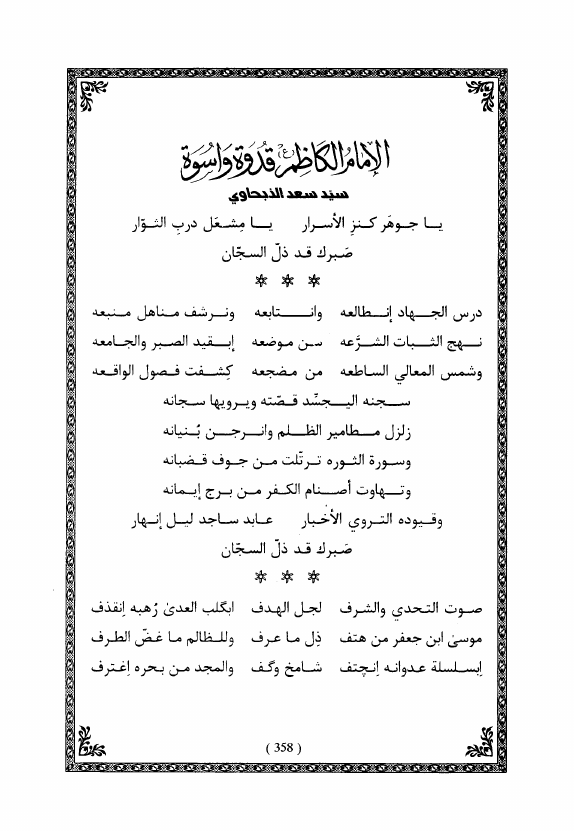 الإمام الكاظم (ع) قدوة واسوة
سيد سعد الذبحاوي
يـا جـوهَر كـنز الأسـرار يـا مِشـعَل دربِ الثـوّار
صَبرك قـد ذلّ السجّان
* * *
درس الجـهاد إنـطالعه وانـتابعه ونـرشف مـناهل مـنبعه
نـهج الثـبات الشـرَّعه سـن مـوضعه إبـقيد الصبر والجـامعه
وشمس المعالي السـاطعه من مـضجعه كِشـفت فـصول الواقـعه
سـجنه اليـجسِّد قـصّته ويـرويها سـجانه
زلزل مـطامير الظـلم وانـرجـن بُـنيانه
وسـورة الثوره تـرتّلت مـن جـوف قـضبانه
وتـهاوت أصـنام الكـفر مـن بـرج إيـمانه
وقـيوده التـروي الأخـبار عـابد سـاجد ليـل إنـهار
صَبرك قـد ذلّ السجّان
* * *
صـوت التـحدي والشـرف لجـل الهـدف ابگلب العدىٰ رُهبه اِنقذف
موسىٰ ابن جعفر من هتف ذِل مـا عـرف وللـظالم مـا غـضّ الطرف
اِبسـلسلة عـدوانـه اِنـچتف شـامخ وگـف والمجد مـن بحره اِغترف
( 358 )